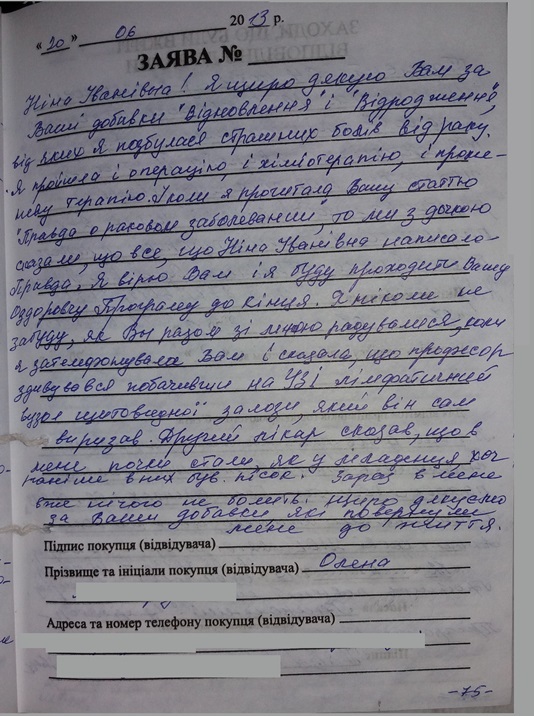 "20" 06 2013 р.
ЗАЯВА №
Ніна Іванівна! Я щиро дякую Вам за
Ваші добавки "Відновлення" і "Відродження",
від яких я позбулася страшних болів від раку.
Я пройшла і операцію, і хіміотерапію, і проме-
неву терапію. І коли я прочитала Вашу статтю
"Правда о раковом заболевании", то ми з дочкою
сказали, що все, що Ніна Іванівна написала-
правда. Я вірю Вам і я буду проходити Вашу
Оздоровчу Програму до кінця. Я ніколи не
забуду, як Ви разом зі мною радувалися, коли
я зателефонувала Вам і сказала, що професор
здивувався побачивши на УЗІ лімфатичний
вузол щитовидної залози, який він сам
вирізав. Другий лікар сказав, що в
мене почки стали, як у младенця, хоч
раніше в них був пісок. Зараз в мене
вже нічого не болить. Щиро дякуємо
за Ваши добавки які повернули
мене до життя.
Підпис покупця (відвідувача)
Прізвище та ініціали покупця (відвідувача) Олена
Адреса та номер телефону покупця (відвідувача)
-75-